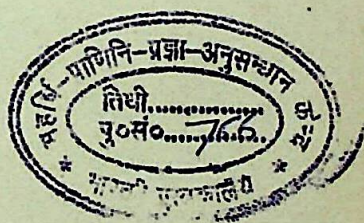 महर्षि-पाणिनि-प्रज्ञा-अनुसन्धान केन्द्र
तिथी..............
पु०सं०....766....